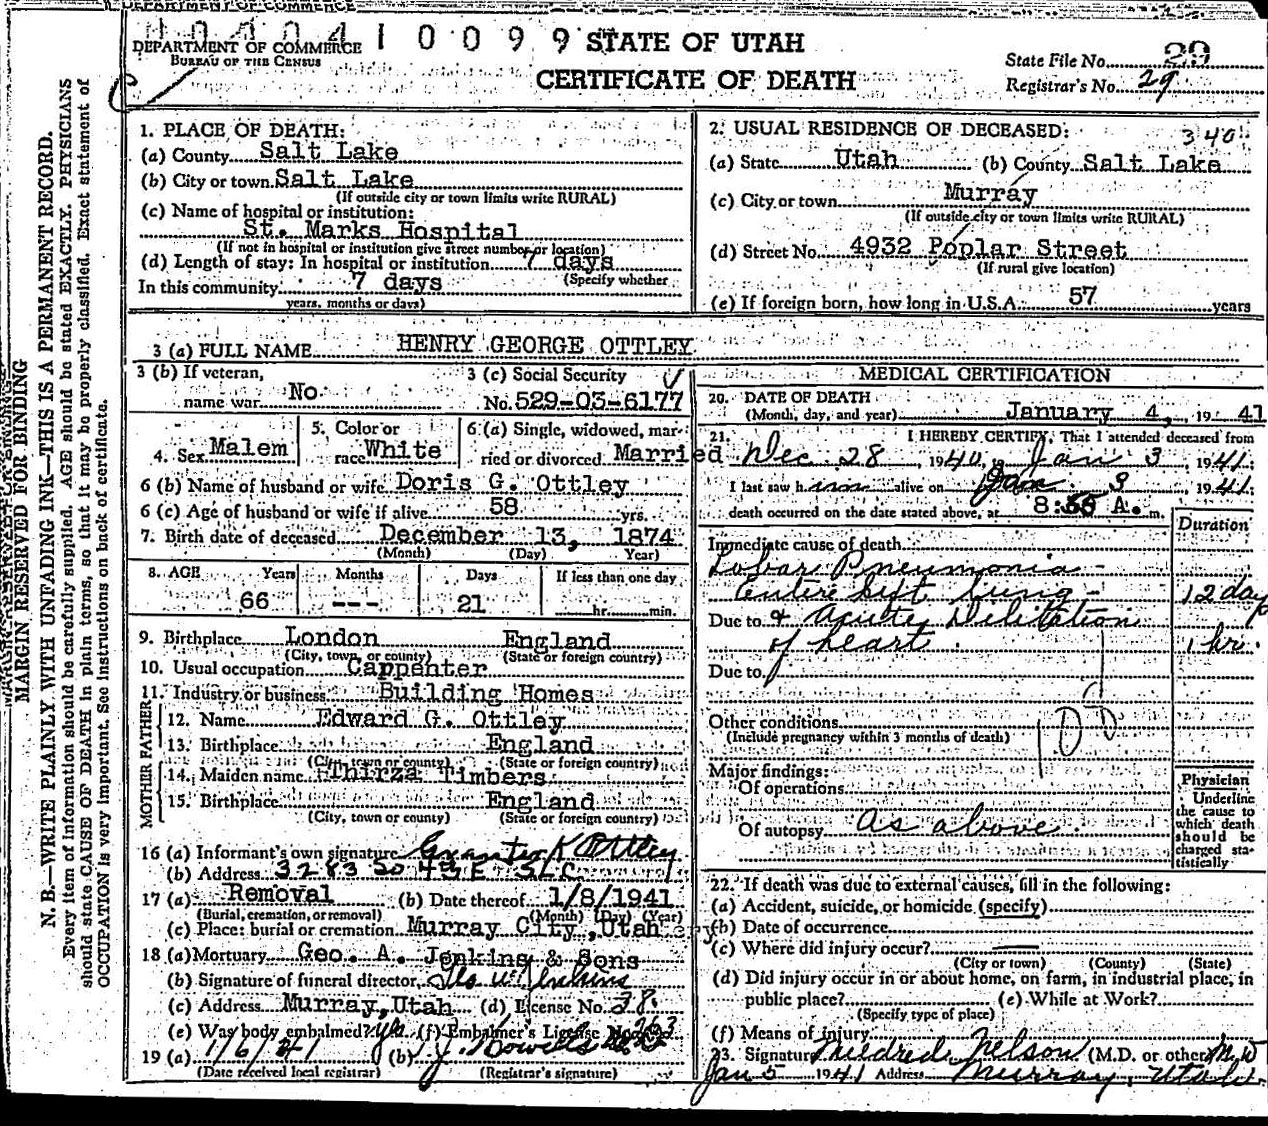 DEPARTMENT OF COMMERCE
BUREAU OF THE CENSUS
STATE OF UTAH
CERTIFICATE OF DEATH
State File No. 29
Registrar's No. 29
MARGIN RESERVED FOR BINDING
N. B.—WRITE PLAINLY, WITH UNFADING INK—THIS IS A PERMANENT RECORD.
Every item of information should be carefully supplied. AGE should be stated EXACTLY. PHYSICIANS
should state CAUSE OF DEATH in plain terms, so that it may be properly classified. Exact statement of
OCCUPATION is very important. See instructions on back of certificate.
1. PLACE OF DEATH:
(a) County Salt Lake
(b) City or town Salt Lake
(If outside city or town limits write RURAL)
(c) Name of hospital or institution:
St. Marks Hospital
(If not in hospital or institution give street number or location)
(d) Length of stay: In hospital or institution 7 days
(Specify whether
In this community 7 days
years, months or days)
2. USUAL RESIDENCE OF DECEASED: 340
(a) State Utah (b) County Salt Lake
(c) City or town Murray
(If outside city or town limits write RURAL)
(d) Street No. 4932 Poplar Street
(If rural give location)
(e) If foreign born, how long in U.S.A. 57 years
3 (a) FULL NAME HENRY GEORGE OTTLEY
3 (b) If veteran,
name war No
3 (c) Social Security
No. 529-03-6177
4. Sex Malem
5. Color or
race White
6 (a) Single, widowed, mar-
ried or divorced Married
6 (b) Name of husband or wife Doris G. Ottley
6 (c) Age of husband or wife if alive 58 yrs.
7. Birth date of deceased December 13, 1874
(Month) (Day) Year)
8. AGE Years Months Days If less than one day
66 --- 21 hr. min.
9. Birthplace London England
(City, town, or county) (State or foreign country)
10. Usual occupation Cappenter
11. Industry or business Building Homes
FATHER
12. Name Edward G. Ottley
13. Birthplace England
(City, town or county) (State or foreign country)
MOTHER
14. Maiden name Thirza Timbers
15. Birthplace England
(City, town or county) (State or foreign country)
16 (a) Informant's own signature K Ottley
(b) Address 3283 SLC
17 (a) Removal (b) Date thereof 1/8/1941
(Burial, cremation, or removal) (Month) (Day) (Year)
(c) Place: burial or cremation Murray City, Utah
18 (a) Mortuary Geo. A. Jenkins & Sons
(b) Signature of funeral director
(c) Address Murray, Utah (d) License No. 38.
(e) Was body embalmed? yes (f) Embalmer's License No.
19 (a) 1/6/41 (b)
(Date received local registrar) (Registrar's signature)
MEDICAL CERTIFICATION
20. DATE OF DEATH
(Month, day, and year) January 4, 19 41
21. I HEREBY CERTIFY, That I attended deceased from
Dec 28, 1940, to Jan 3, 1941;
I last saw him alive on Jan. 3, 1941;
death occurred on the date stated above, at 8:55 A. m.
Duration
Immediate cause of death
Lobar Pneumonia -
entire left lung - 12 days
Due to & Acute Dilitation
of heart. 1 hr.
Due to
Other conditions
(Include pregnancy within 3 months of death)
Major findings:
Of operations
Of autopsy As above.
Physician
Underline
the cause to
which death
should be
charged sta-
tistically
22. If death was due to external causes, fill in the following:
(a) Accident, suicide, or homicide (specify)
(b) Date of occurrence
(c) Where did injury occur?
(City or town) (County) (State)
(d) Did injury occur in or about home, on farm, in industrial place, in
public place? (e) While at Work?
(Specify type of place)
(f) Means of injury
23. Signature Mildred Nelson (M.D. or other) M.D
Jan 5 1941 Address Murray, Utah.